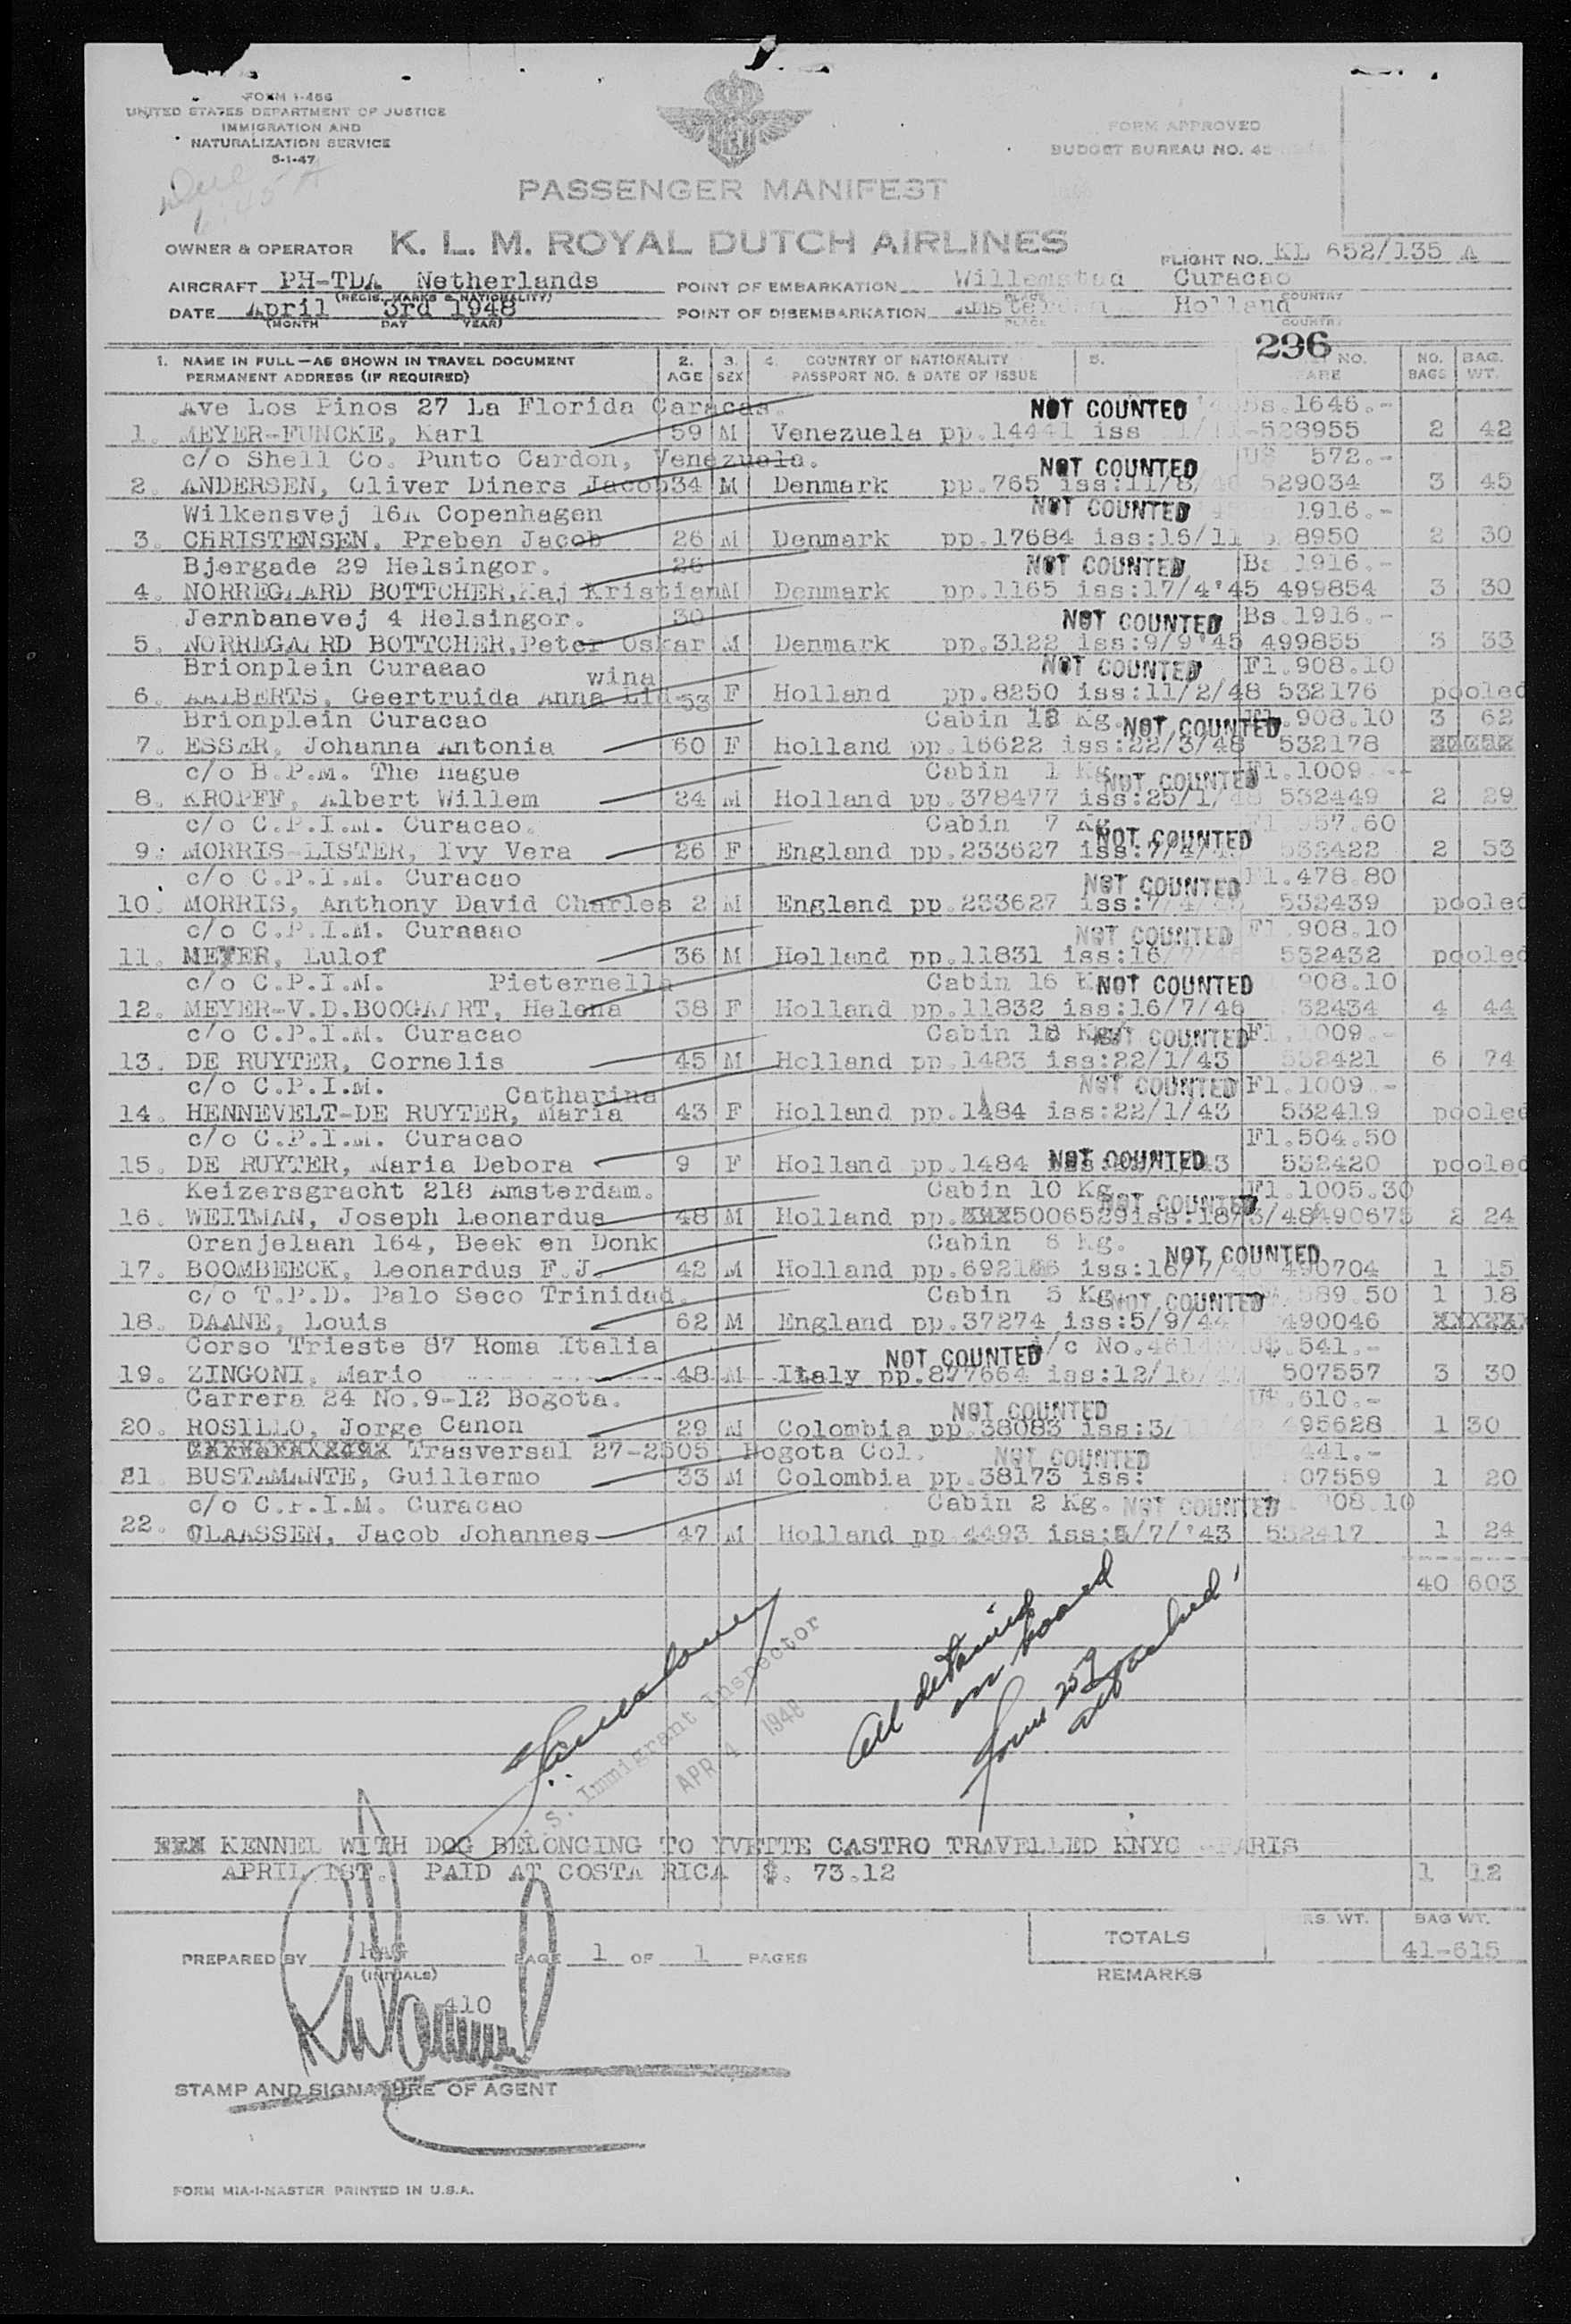 FORM I-466
UNITED STATES DEPARTMENT OF JUSTICE
IMMIGRATION AND
NATURALIZATION SERVICE
5-1-47
FORM APPROVED
BUDGET BUREAU NO. 43
PASSENGER MANIFEST
OWNER & OPERATOR K. L. M. ROYAL DUTCH AIRLINES
FLIGHT NO. KL 652/135 A
AIRCRAFT PH-TDA Netherlands POINT OF EMBARKATION Willemstad Curacao
(REGIS. MARKS & NATIONALITY) PLACE COUNTRY
DATE April 3rd 1948 POINT OF DISEMBARKATION Amsterdam Holland
(MONTH DAY YEAR) PLACE COUNTRY
296
1. NAME IN FULL—AS SHOWN IN TRAVEL DOCUMENT 2. 3. 4. COUNTRY OF NATIONALITY 5. NO. NO. BAG.
PERMANENT ADDRESS (IF REQUIRED) AGE SEX PASSPORT NO. & DATE OF ISSUE FARE BAGS WT.
Ave Los Pinos 27 La Florida Caracas. NOT COUNTED Bs.1646.-
1. MEYER-FUNCKE, Karl 59 M Venezuela pp.14441 iss 528955 2 42
c/o Shell Co. Punto Cardon, Venezuela. NOT COUNTED US 572.-
2. ANDERSEN, Oliver Diners Jacob 34 M Denmark pp.765 iss:11/8/ 529034 3 45
Wilkensvej 16A Copenhagen NOT COUNTED 1916.-
3. CHRISTENSEN, Preben Jacob 26 M Denmark pp.17684 iss:15/11 8950 2 30
Bjergade 29 Helsingor. 26 NOT COUNTED Bs 1916.-
4. NORREGAARD BOTTCHER,Kaj Kristian M Denmark pp.1165 iss:17/4'45 499854 3 30
Jernbanevej 4 Helsingor. 30 NOT COUNTED Bs.1916.-
5. NORREGAARD BOTTCHER,Peter Oskar M Denmark pp.3122 iss:9/9'45 499855 3 33
Brionplein Curaaao wina NOT COUNTED Fl.908.10
6. AALBERTS, Geertruida Anna Lud- 53 F Holland pp.8250 iss:11/2/48 532176 pooled
Brionplein Curacao Cabin 18 Kg. NOT COUNTED Fl.908.10 3 62
7. ESSER, Johanna Antonia 60 F Holland pp.16622 iss:22/3/48 532178
c/o B.P.M. The Hague Cabin 1 Kg NOT COUNTED Fl.1009.--
8. KROPFF, Albert Willem 24 M Holland pp.378477 iss:25/1/48 532449 2 29
c/o C.P.I.M. Curacao. Cabin 7 Kg NOT COUNTED Fl 957.60
9. MORRIS-LISTER, Ivy Vera 26 F England pp.233627 iss:7/4/ 532422 2 53
c/o C.P.I.M. Curacao NOT COUNTED Fl.478.80
10. MORRIS, Anthony David Charles 2 M England pp.233627 iss:7/4/ 532439 pooled
c/o C.P.I.M. Curaaao NOT COUNTED Fl.908.10
11. MEYER, Lulof 36 M Holland pp.11831 iss:16/7/46 532432 pooled
c/o C.P.I.M. Pieternella Cabin 16 K NOT COUNTED 908.10
12. MEYER-V.D.BOOGAART, Helena 38 F Holland pp.11832 iss:16/7/46 32434 4 44
c/o C.P.I.M. Curacao Cabin 18 Kg NOT COUNTED Fl.1009.-
13. DE RUYTER, Cornelis 45 M Holland pp.1483 iss:22/1/43 532421 6 74
c/o C.P.I.M. Catharina NOT COUNTED Fl.1009.-
14. HENNEVELT-DE RUYTER, Maria 43 F Holland pp.1484 iss:22/1/43 532419 pooled
c/o C.P.I.M. Curacao Fl.504.50
15. DE RUYTER, Maria Debora 9 F Holland pp.1484 NOT COUNTED 43 532420 pooled
Keizersgracht 218 Amsterdam. Cabin 10 Kg NOT COUNTED Fl.1005.30
16. WEITMAN, Joseph Leonardus 48 M Holland pp.XXX5006529iss:18/3/48 490675 2 24
Oranjelaan 164, Beek en Donk Cabin 6 Kg. NOT COUNTED
17. BOOMBEECK, Leonardus F.J. 42 M Holland pp.692186 iss:16/7/ 490704 1 15
c/o T.P.D. Palo Seco Trinidad. Cabin 5 Kg NOT COUNTED 589.50 1 18
18. DAANE, Louis 62 M England pp.37274 iss:5/9/44 490046 XXXXXX
Corso Trieste 87 Roma Italia NOT COUNTED /c No.4614 U$.541.-
19. ZINGONI, Mario 48 M Italy pp.877664 iss:12/16/ 507557 3 30
Carrera 24 No.9-12 Bogota. NOT COUNTED .610.-
20. ROSILLO, Jorge Canon 29 M Colombia pp.38083 iss:3/ 495628 1 30
Trasversal 27-2505 Bogota Col. NOT COUNTED 441.-
21. BUSTAMANTE, Guillermo 33 M Colombia pp.38173 iss: 07559 1 20
c/o C.P.I.M. Curacao Cabin 2 Kg. NOT COUNTED 908.10
22. CLAASSEN, Jacob Johannes 47 M Holland pp.4493 iss:5/7/'43 532417 1 24
40 603
All detained
on board
Form 259
attached
S. Immigrant Inspector
APR 4 1948
KENNEL WITH DOG BELONGING TO YVETTE CASTRO TRAVELLED KNYC -PARIS
APRIL 1ST. PAID AT COSTA RICA $. 73.12 1 12
TOTALS PRS. WT. BAG WT.
41-615
PREPARED BY PAGE 1 OF 1 PAGES
(INITIALS)
REMARKS
410
STAMP AND SIGNATURE OF AGENT
FORM MIA-1-MASTER PRINTED IN U.S.A.